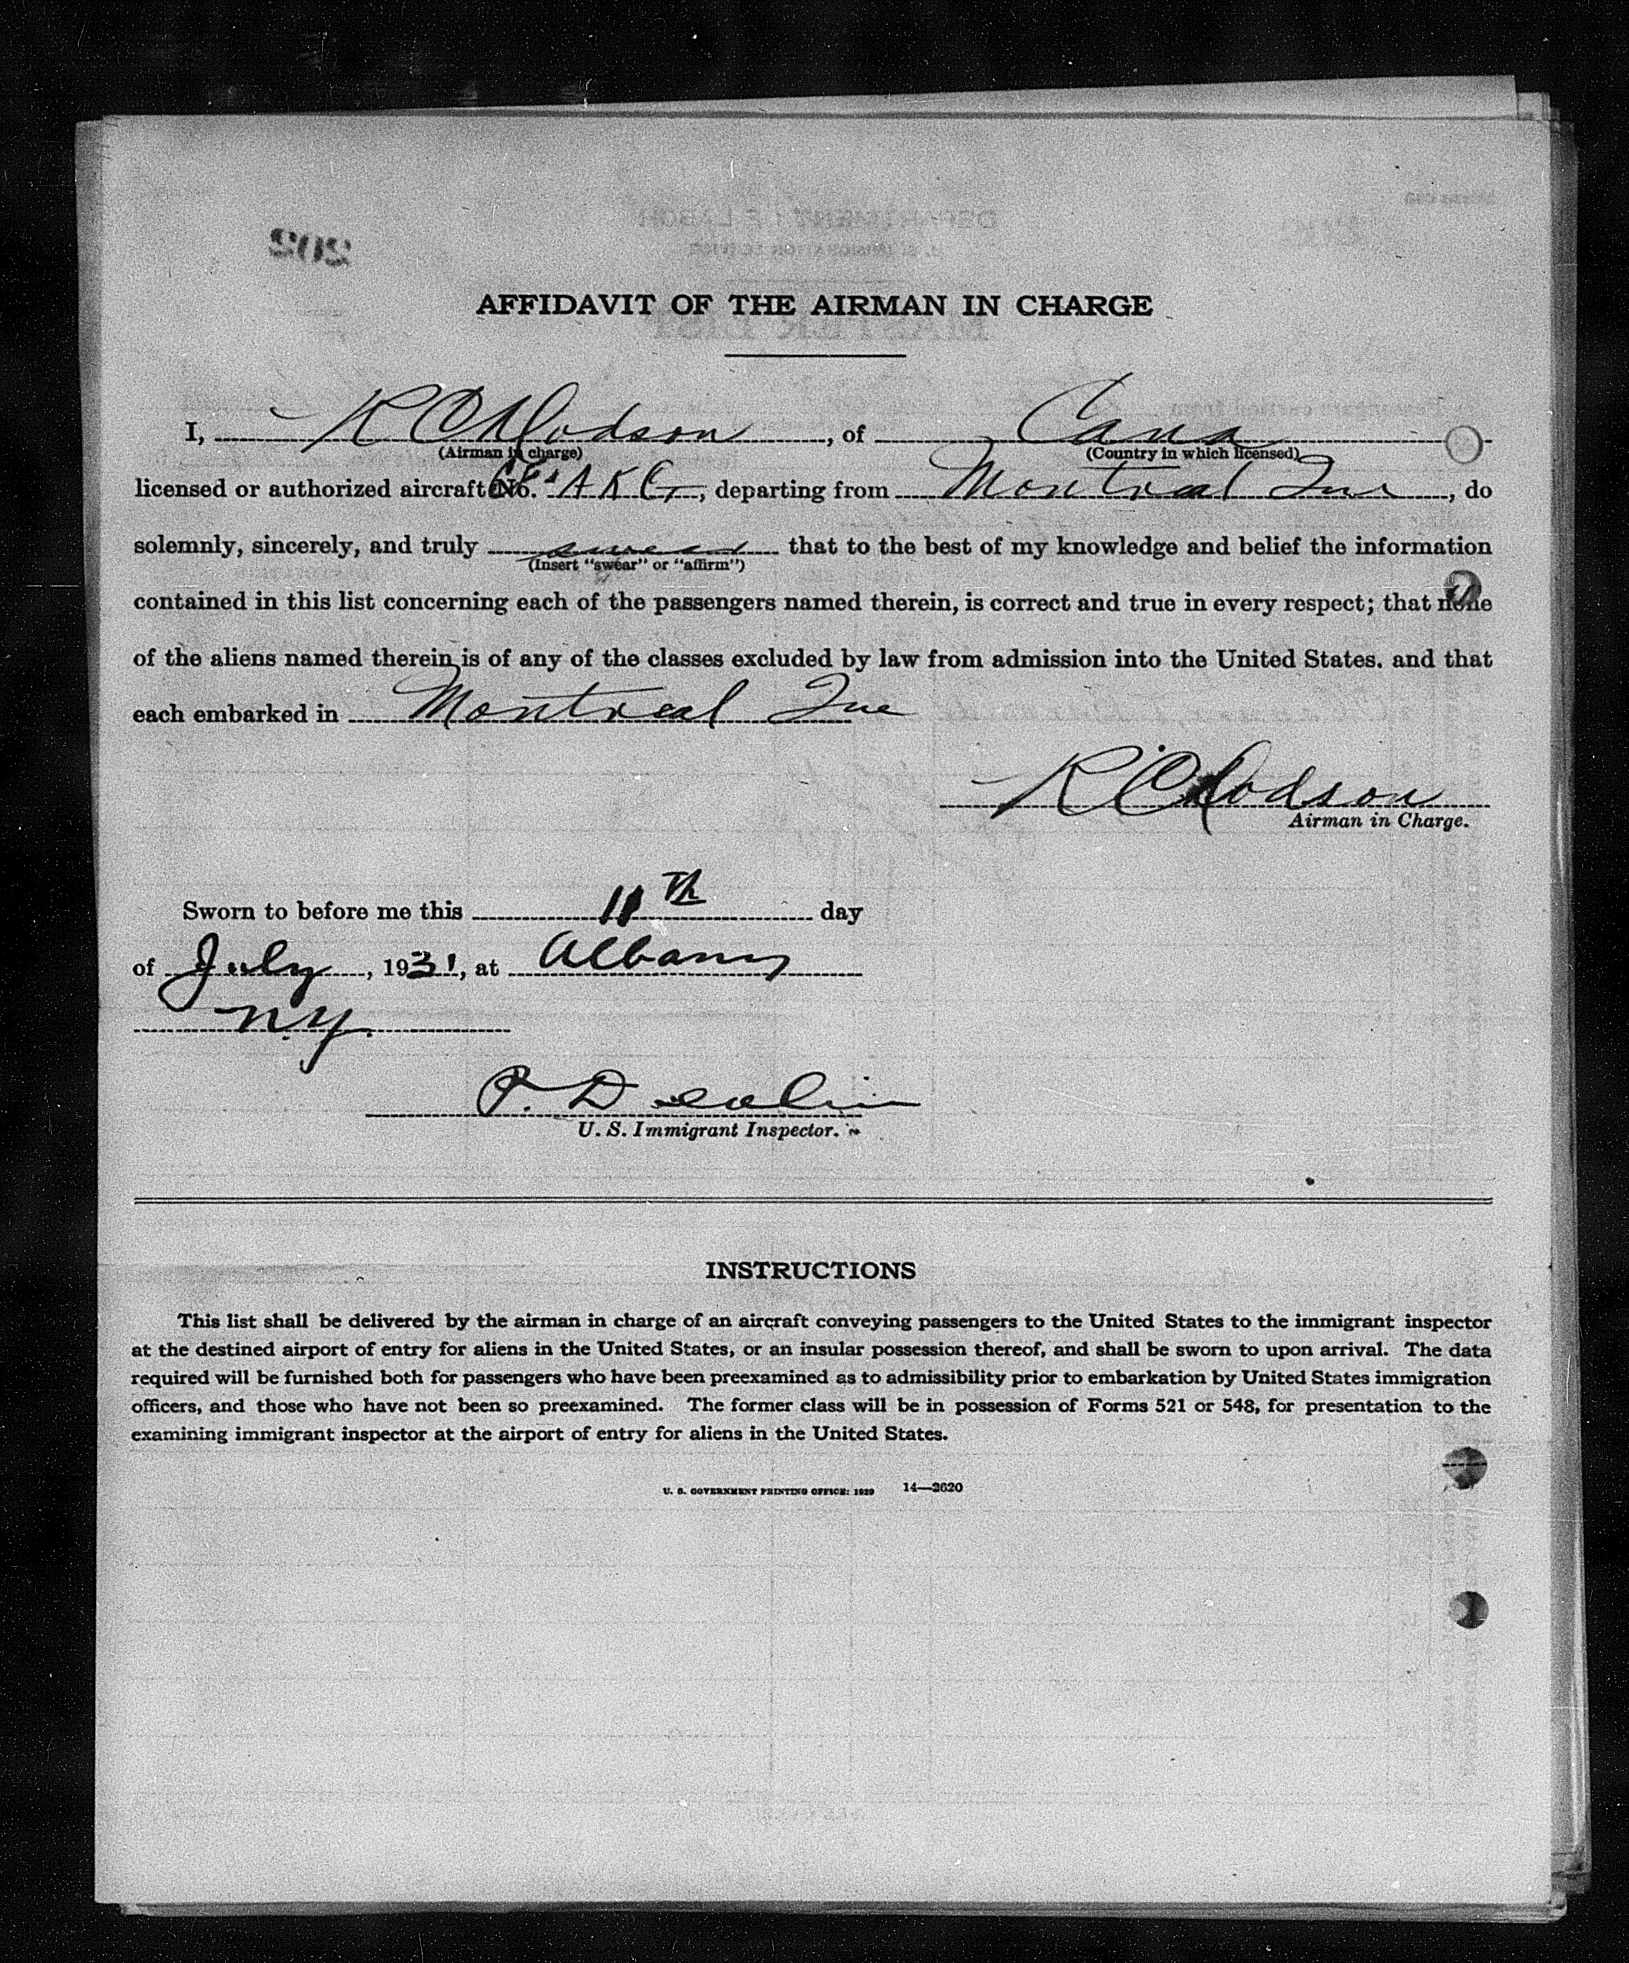 202
AFFIDAVIT OF THE AIRMAN IN CHARGE
I, R C Dodson, of Cana
(Airman in charge) (Country in which licensed)
licensed or authorized aircraft No. CF AKG, departing from Montreal Que, do
solemnly, sincerely, and truly swear that to the best of my knowledge and belief the information
(Insert "swear" or "affirm")
contained in this list concerning each of the passengers named therein, is correct and true in every respect; that none
of the aliens named therein is of any of the classes excluded by law from admission into the United States. and that
each embarked in Montreal Que
R C Dodson
Airman in Charge.
Sworn to before me this 11th day
of July, 1931, at Albany
N.Y.
P. Devlin
U. S. Immigrant Inspector.
INSTRUCTIONS
This list shall be delivered by the airman in charge of an aircraft conveying passengers to the United States to the immigrant inspector
at the destined airport of entry for aliens in the United States, or an insular possession thereof, and shall be sworn to upon arrival. The data
required will be furnished both for passengers who have been preexamined as to admissibility prior to embarkation by United States immigration
officers, and those who have not been so preexamined. The former class will be in possession of Forms 521 or 548, for presentation to the
examining immigrant inspector at the airport of entry for aliens in the United States.
U. S. GOVERNMENT PRINTING OFFICE: 1929 14—2620